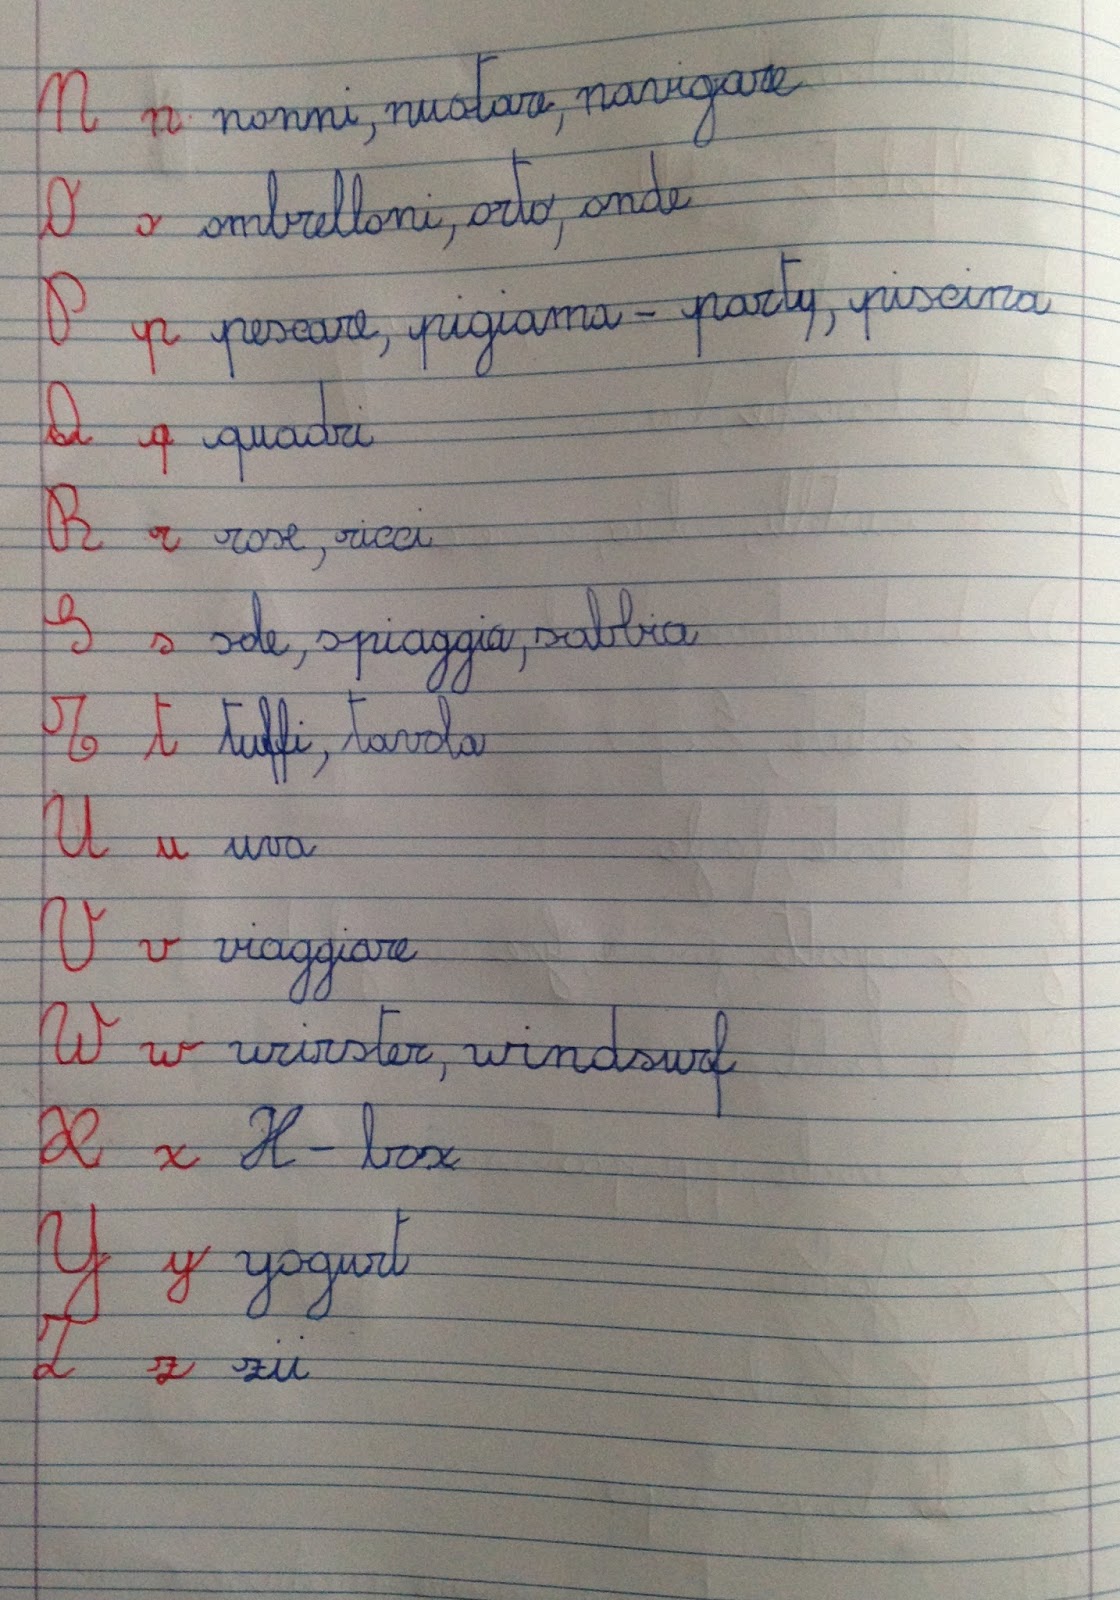 N n nonni, nuotare, navigare
O o ombrelloni, orto, onde
P p pescare, pigiama - party, piscina
Q q quadri
R r rose, ricci
S s sole, spiaggia, sabbia
T t tuffi, tavola
U u uva
V v viaggiare
W w wurster, windsurf
X x X - box
Y y yogurt
Z z zii